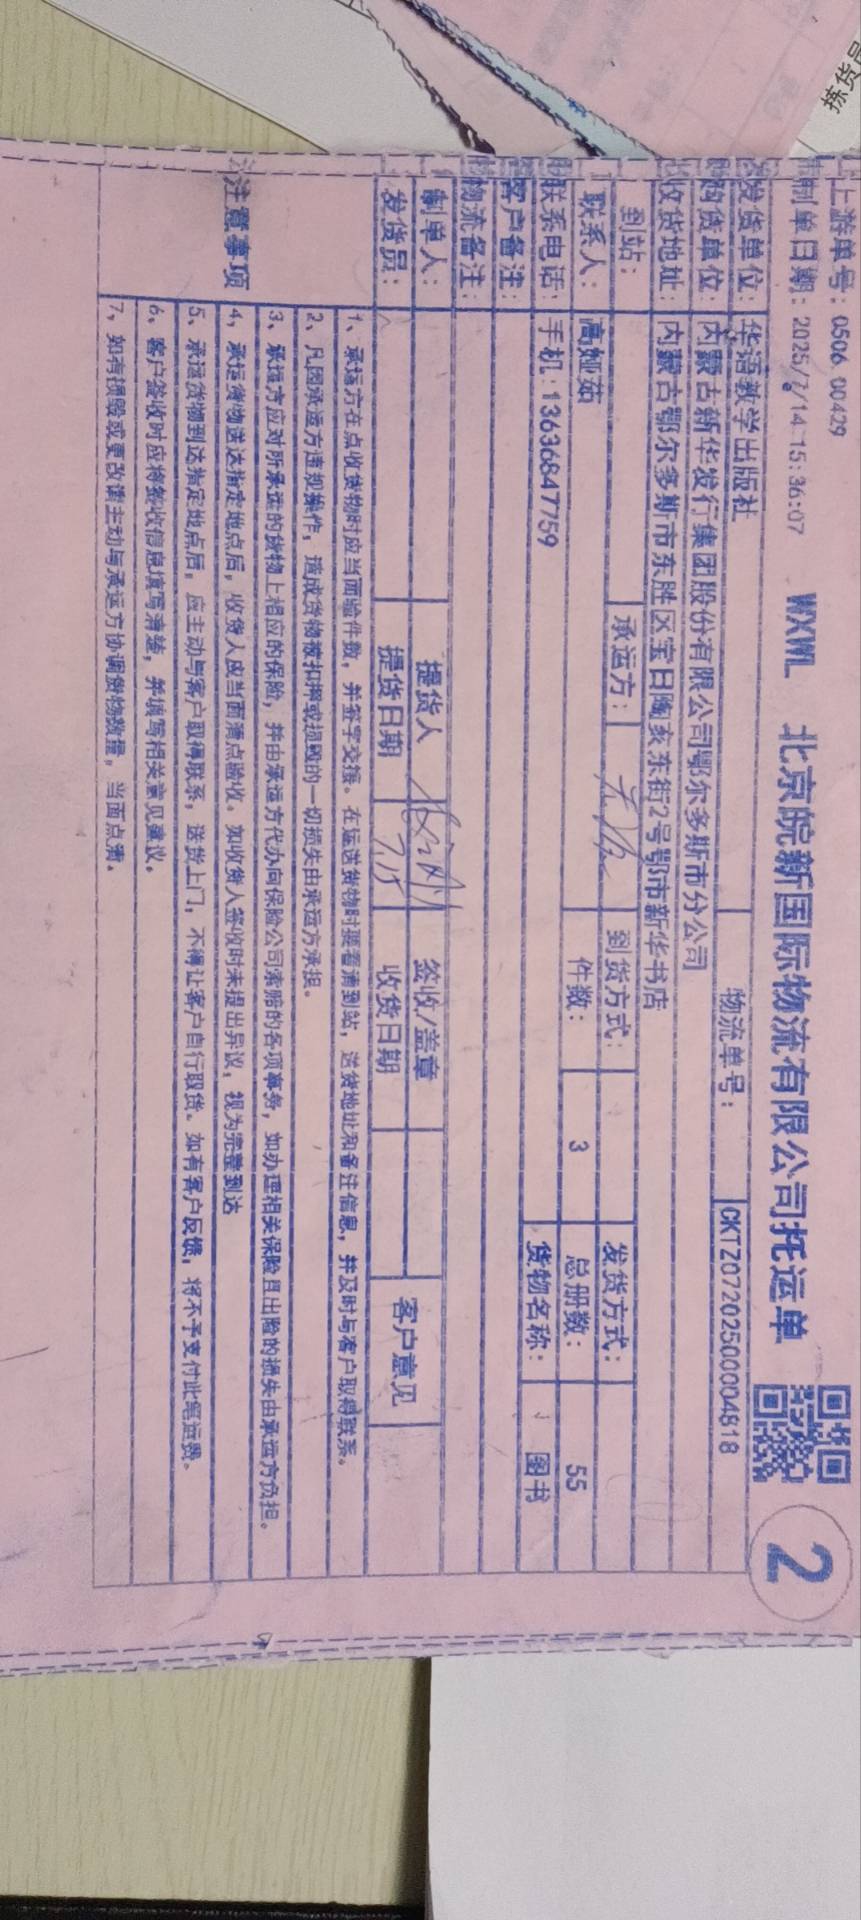 拣货员
上游单号：0506 00429
制单日期：2025/7/14 15:36:07 WXWL 北京皖新国际物流有限公司托运单 2
发货单位：华语教学出版社 物流单号： CKTZ07202500004818
购货单位：内蒙古新华发行集团股份有限公司鄂尔多斯市分公司
收货地址：内蒙古鄂尔多斯市东胜区宝日陶亥东街2号鄂市新华书店
到站： 承运方： 到货方式： 发货方式：
联系人：高娅茹 件数： 3 总册数： 55
联系电话：手机:13636847759 货物名称： 图书
客户备注：
物流备注：
制单人： 提货人 签收/盖章 客户意见
发货员： 提货日期 7.15 收货日期
注意事项
1、承运方在点收货物时应当面验件数，并签字交接。在运送货物时要看清到站，送货地址和备注信息，并及时与客户取得联系。
2、凡因承运方违规操作，造成货物被扣押或损毁的一切损失由承运方承担。
3、承运方应对所承运的货物上相应的保险，并由承运方代办向保险公司索赔的各项事务，如办理相关保险且出险的损失由承运方负担。
4、承运货物送达指定地点后，收货人应当面清点验收。如收货人签收时未提出异议，视为完整到达
5、承运货物到达指定地点后，应主动与客户取得联系，送货上门，不得让客户自行取货。如有客户反馈，将不予支付此笔运费。
6、客户签收时应将签收信息填写清楚，并填写相关意见建议。
7、如有损毁或更改请主动与承运方协调货物数量，当面点清。